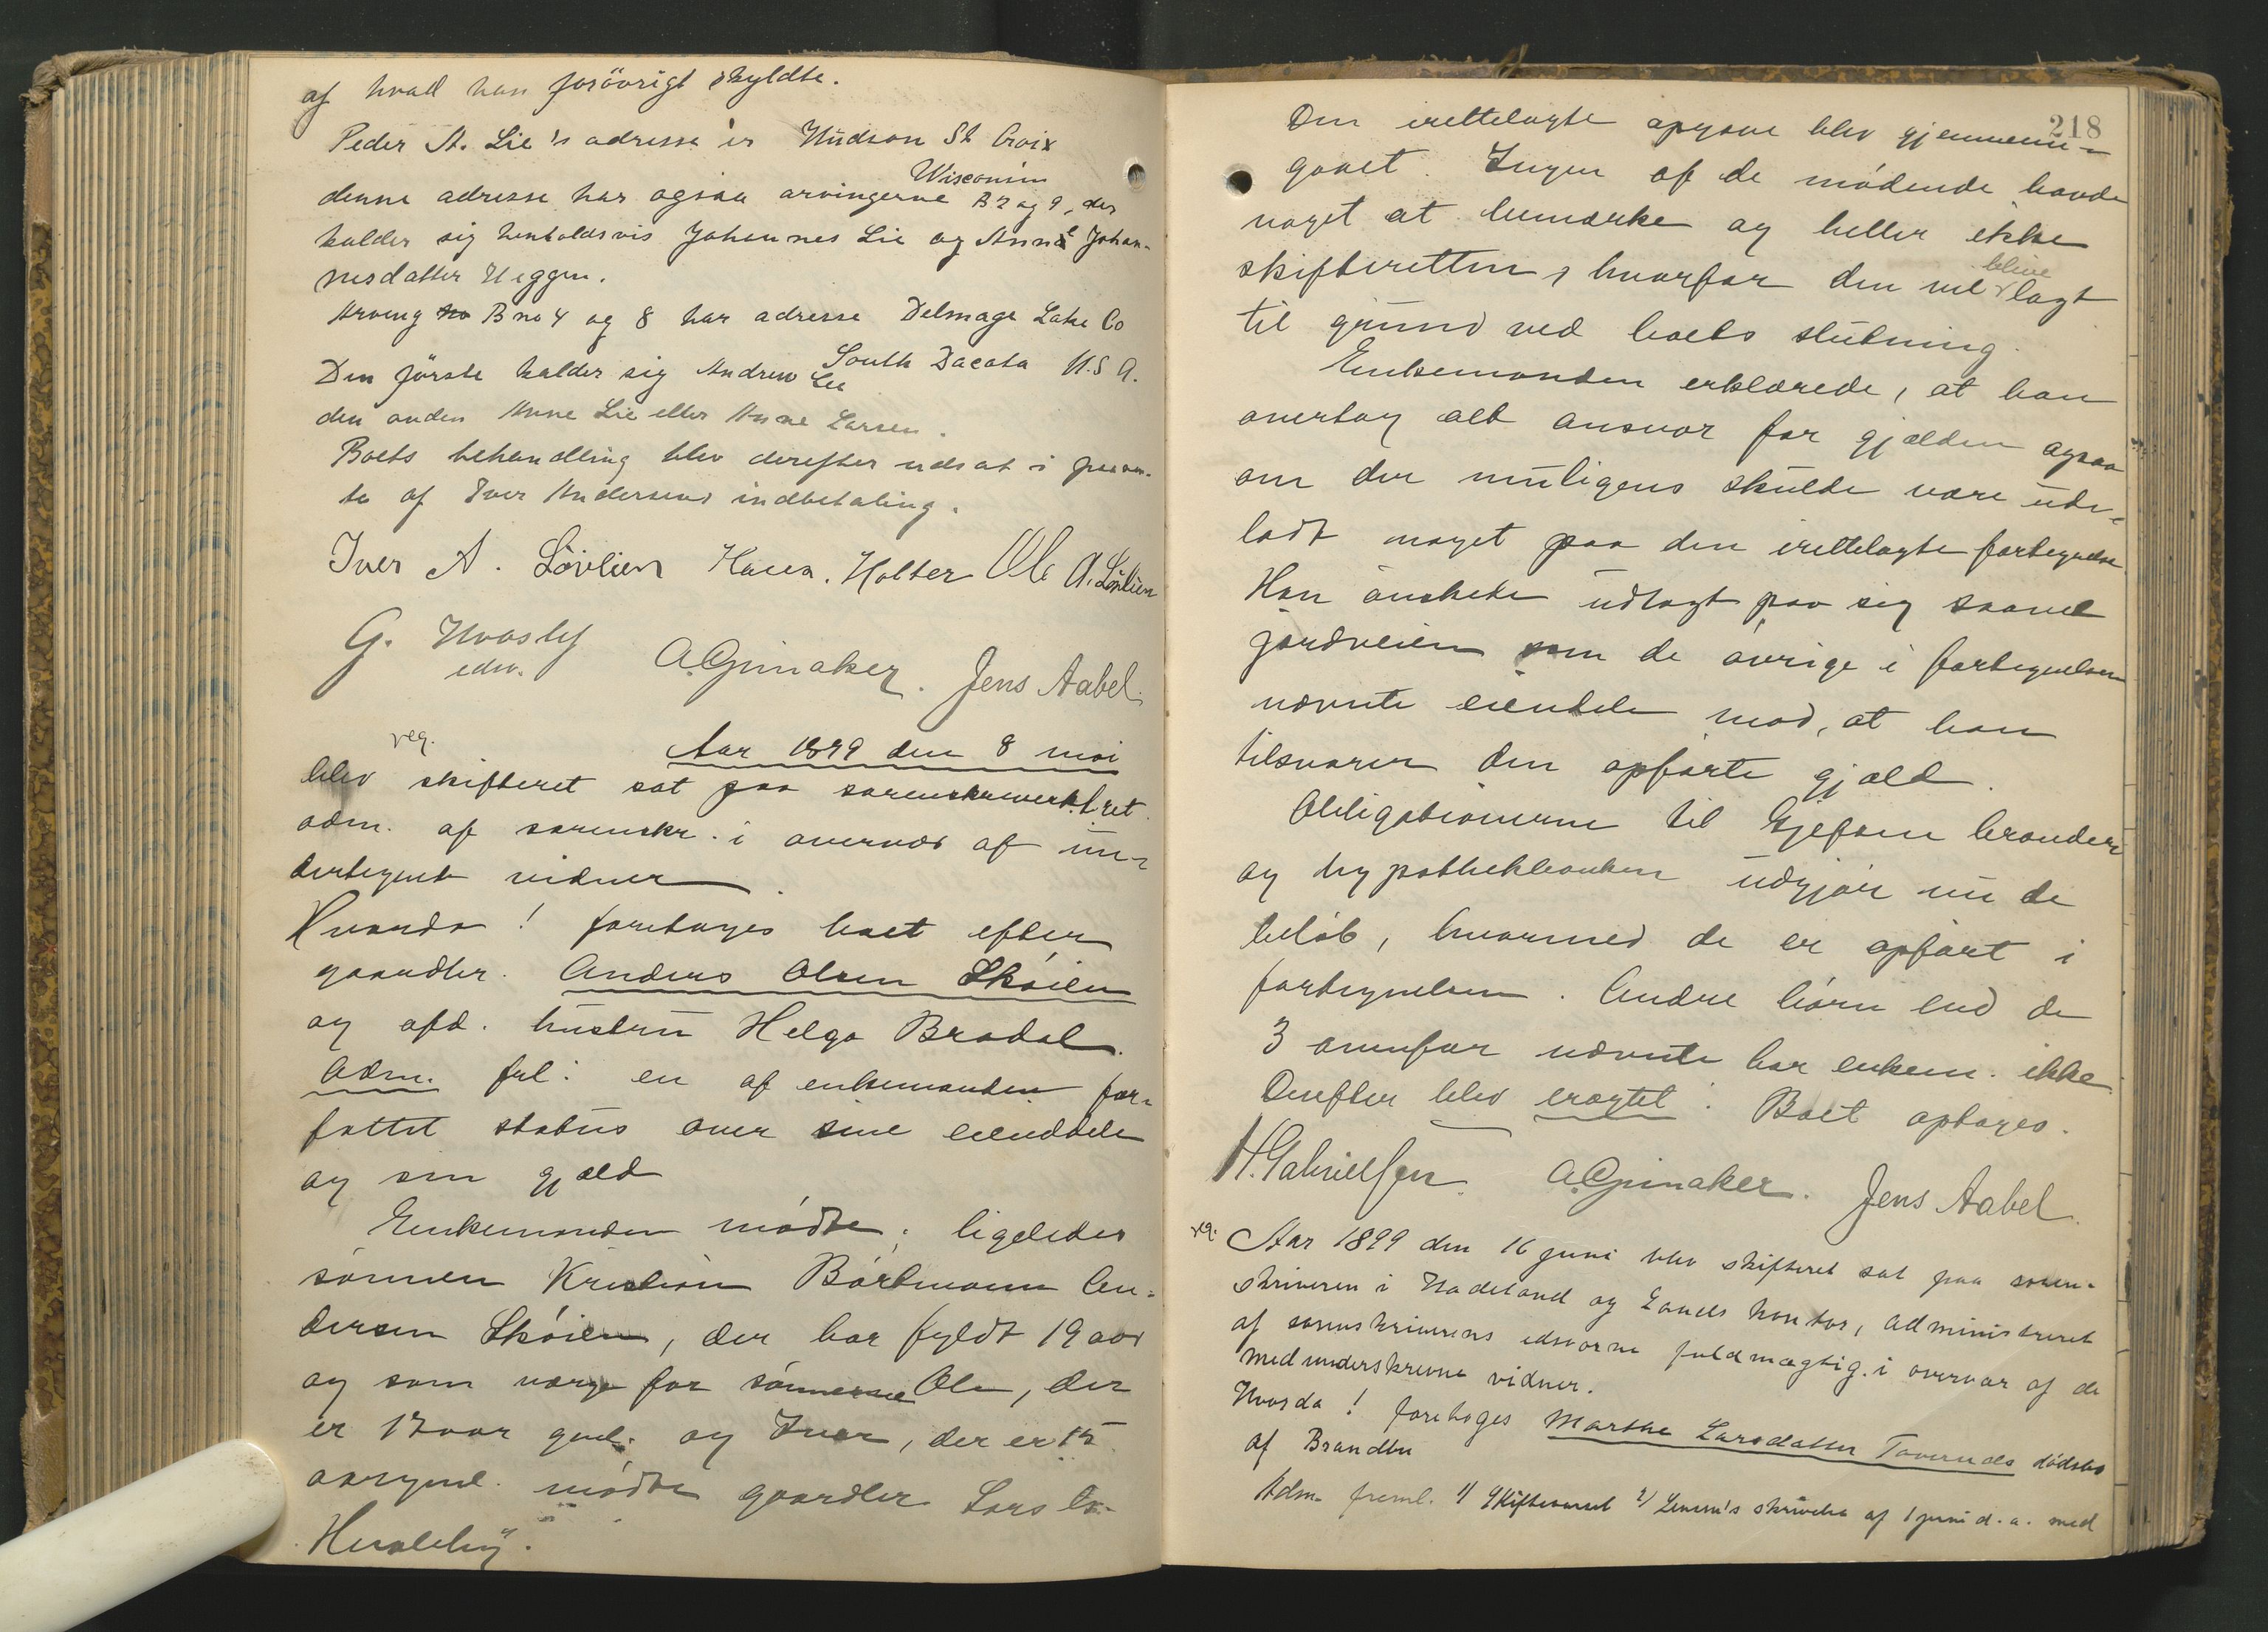 af hvad han forövrigt skyldte.
Peder A. Lie's adresse er Hudson St Croix
Wisconsin
denne adresse har ogsaa arvingerne B 2 og 9, der
kalder sig henholdsvis Johannes Lie og Anne Johan-
nesdatter Heggen.
Arving no B no 4 og 8 har adresse Delmage Lake Co
South Dacota U.S A.
Den förste kalder sig Andrew Lee
den anden Anne Lie eller Anne Larsen.
Boets behandling blev derefter udsat i paaven-
te af Iver Andersens indbetaling.
Iver A. Lövlien Hans. Holter Ole A. Lövlien
G. Hvasly
edsv.
A. Grinaker. Jens Aabel.
reg.
Aar 1899 den 8 mai
blev skifteret sat paa sorenskriverk.
adm. af sorenskr. i overvær af un-
dertegnede vidner.
Hvorda! foretoges boet efter
gaardbr. Anders Olsen Sköien
og afd. hustru Helga Bradal.
Adm. frl: en af enkemanden for-
fattet status over sine eiendele
og sin gjæld
Enkemanden mödte; ligeledes
sönnen Kristian Börtmann An-
dersen Sköien, der har fyldt 19 aar
og som værge for sönnerne Ole, der
er 17 aar gml. og Iver, der er 15
aar gml. mödte gaardbr. Lars
Hvaleby.
218
Den irettelagte opgave blev gjennem-
gaaet. Ingen af de mödende havde
noget at bemærke og heller ikke
skifteretten, hvorfor den vil blive lagt
til grund ved boets slutning.
Enkemanden erklærede, at han
overtog alt ansvar for gjælden ogsaa
om der muligens skulde være ude-
ladt noget paa den irettelagte fortegnelse.
Han önskede udlagt paa sig saavel
jordveien som de övrige i fortegnelsen
nævnte eiendele mod, at han
tilsvarer den opförte gjæld.
Obligationerne til Gjefsen brænderi
og hypothekbanken udgjör nu de
belöb, hvormed de er opfört i
fortegnelsen. Andre börn end de
3 ovenfor nævnte har enkem. ikke.
Derefter blev eragtet: Boet optages.
H. Gabrielsen. A. Grinaker. Jens Aabel.
reg.
Aar 1899 den 16 juni blev skifteret sat paa soren-
skriveren i Hadeland og Lands kontor, administreret
af sorenskriverens edsvorne fuldmægtig. i overvær af de
medunderskrevne vidner.
Hvorda! foretoges Marthe Larsdatter Toverudes dödsbo
af Brandbu
Adm. freml. 1/ Skiftevarsel 2/ Lensm's skrivelse af 1 juni d. a. med